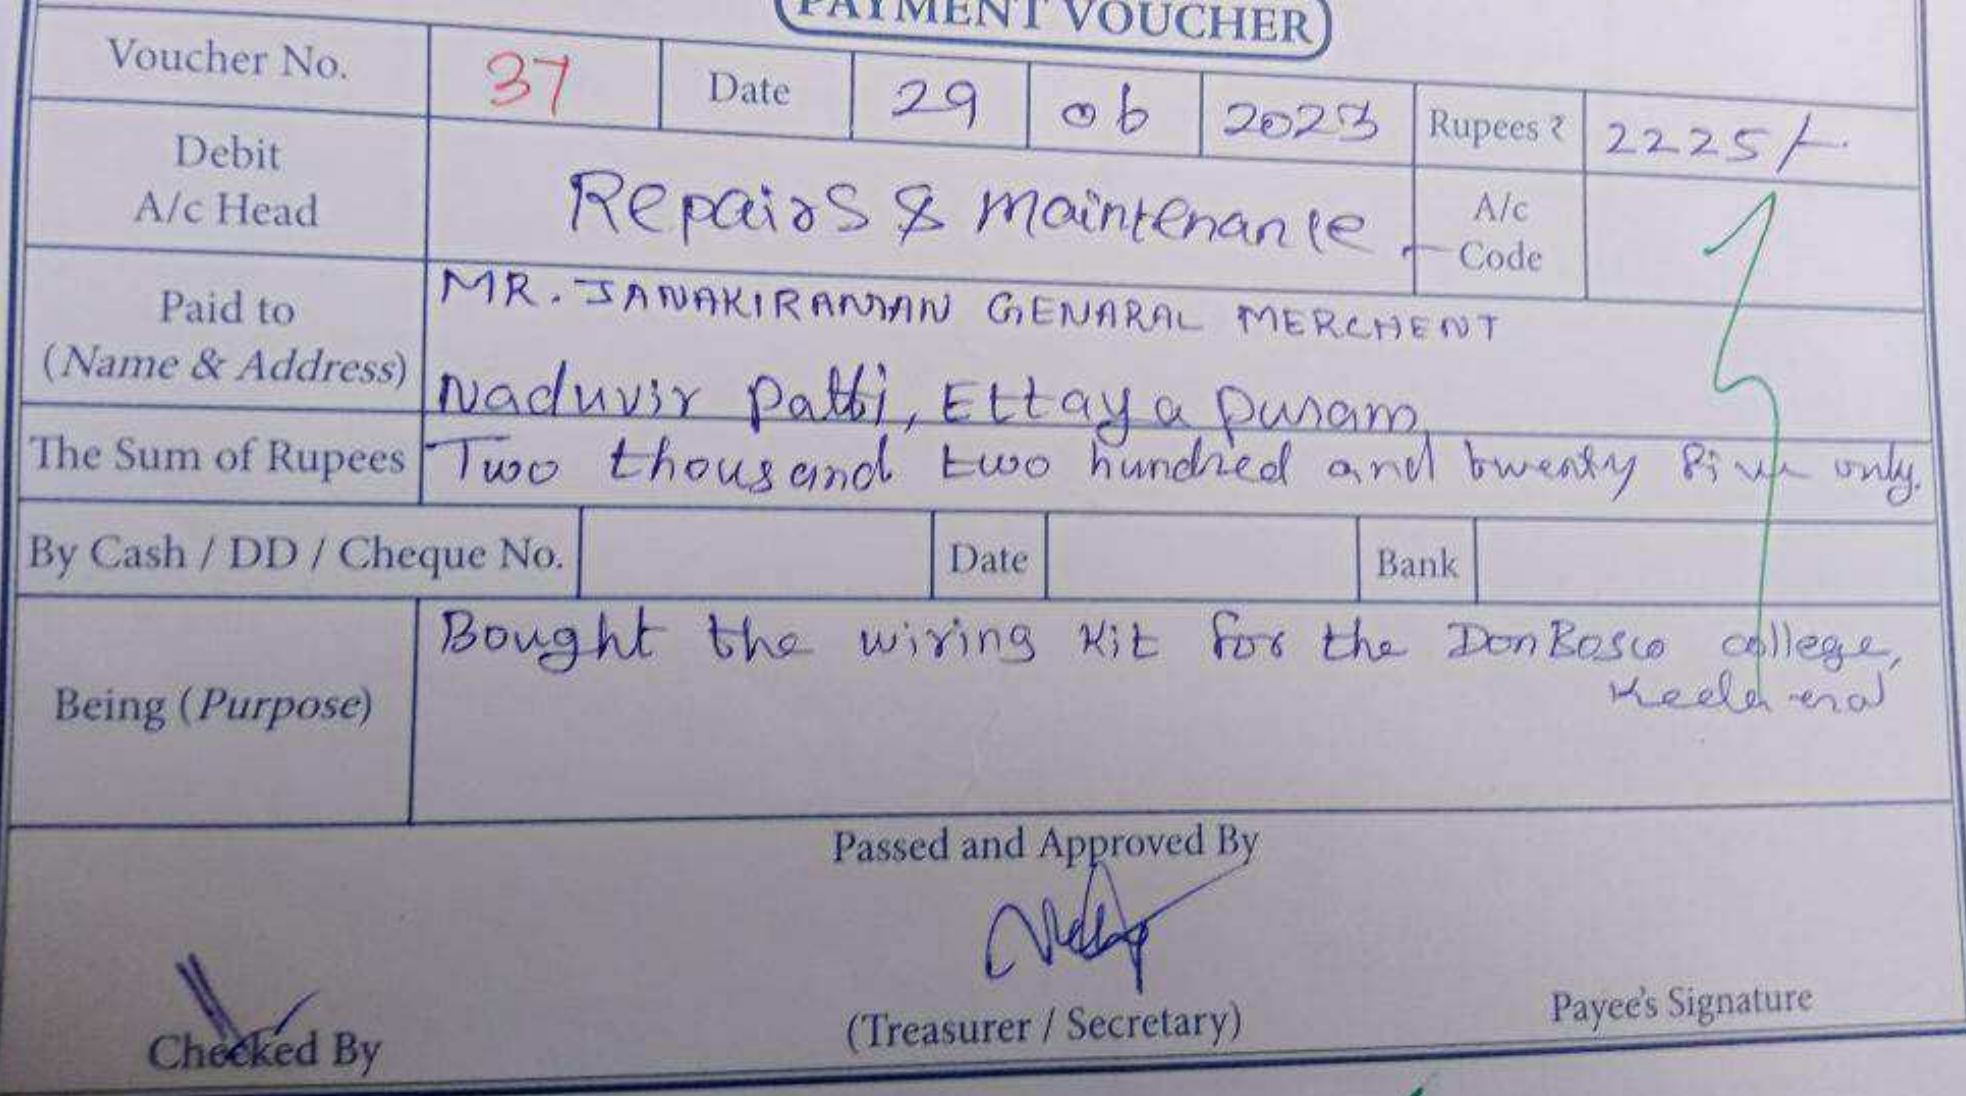 PAYMENT VOUCHER
Voucher No. 37 Date 29 06 2023 Rupees ₹ 2225/-
Debit
A/c Head
Repairs & maintenance
A/c
Code
Paid to
(Name & Address)
MR. JANAKIRAMAN GENARAL MERCHENT
Naduvir Patti, Ettayapuram
The Sum of Rupees Two thousand two hundred and twenty five only.
By Cash / DD / Cheque No. Date Bank
Being (Purpose)
Bought the wiring kit for the Don Bosco college,
Keela eral
Passed and Approved By
(Treasurer / Secretary)
Payee's Signature
Checked By